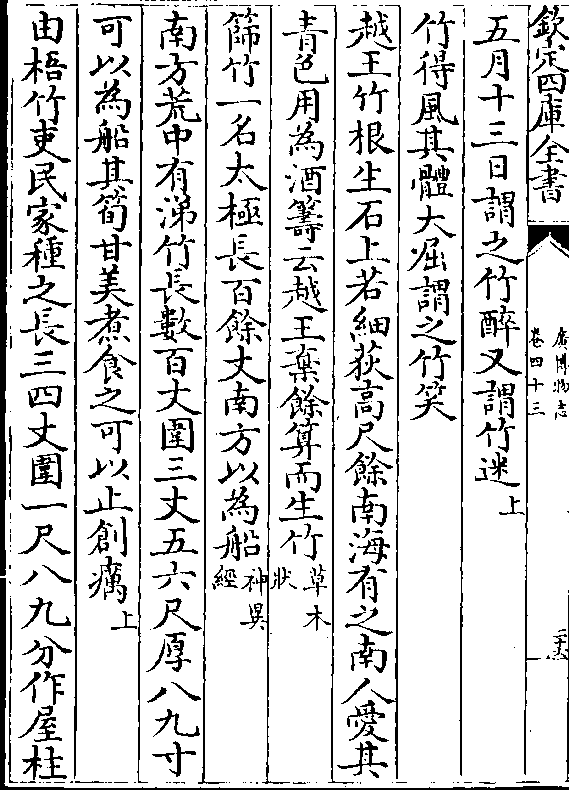 欽定四庫全書
廣博物志
卷四十三
二十六
五月十三日謂之竹醉又謂竹迷上
竹得風其體大屈謂之竹笑
越王竹根生石上若細荻高尺餘南海有之南人愛其
青色用為酒籌云越王棄餘算而生竹草木狀
篩竹一名太極長百餘丈南方以為船神異經
南方荒中有涕竹長數百丈圍三丈五六尺厚八九寸
可以為船其筍甘美煮食之可以止創癘上
由梧竹吏民家種之長三四丈圍一尺八九分作屋柱